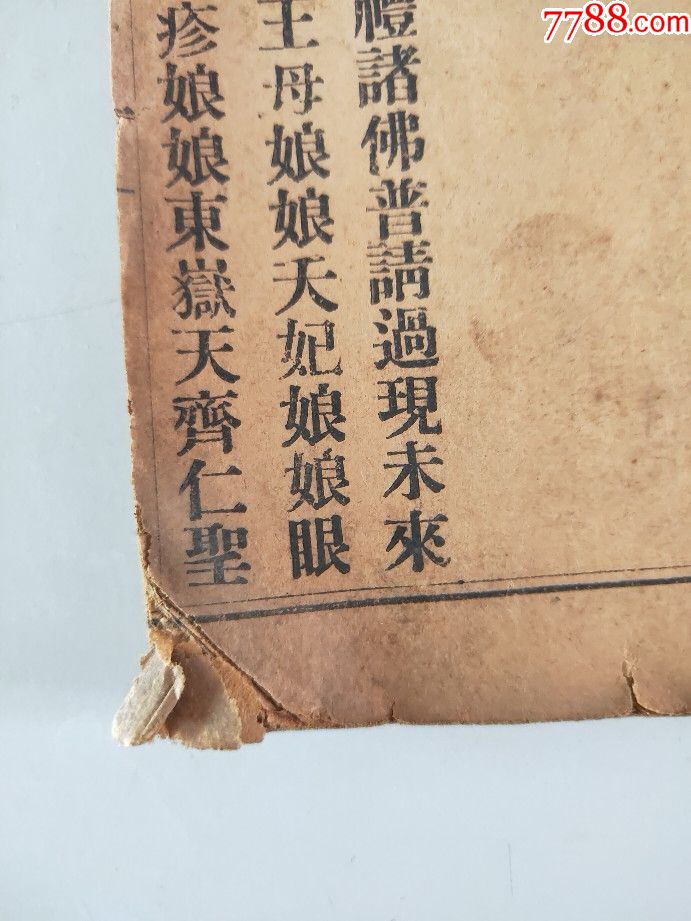 7788.com
禮諸佛普請過現未來
王母娘娘天妃娘娘眼
疹娘娘東嶽天齊仁聖